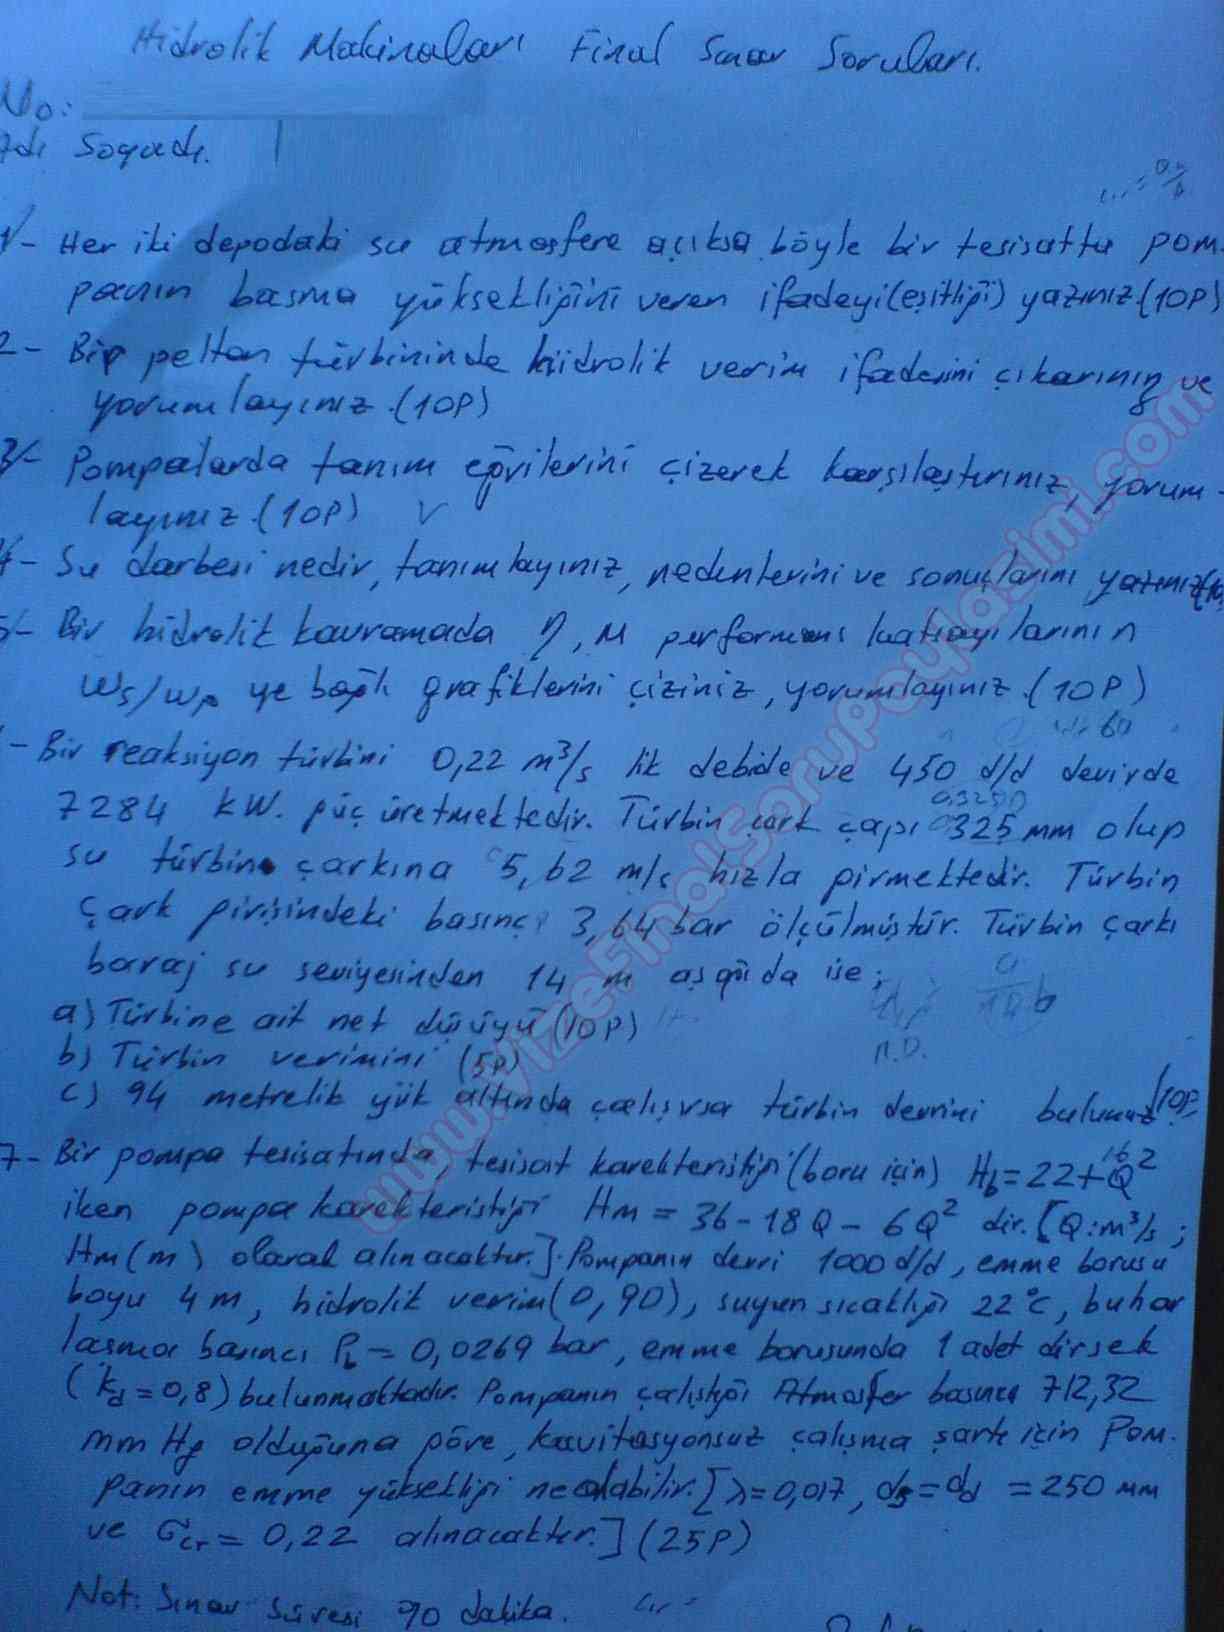 Hidrolik Makinaları Final Sınav Soruları.
No:
Adı Soyadı.
1- Her iki depodaki su atmosfere açıksa böyle bir tesisatta pom-
panın basma yüksekliğini veren ifadeyi(eşitliği) yazınız.(10P)
2- Bir pelton türbininde hidrolik verim ifadesini çıkarınız ve
yorumlayınız.(10P)
3- Pompalarda tanım eğrilerini çizerek karşılaştırınız, yorum-
layınız.(10P)
4- Su darbesi nedir, tanımlayınız, nedenlerini ve sonuçlarını yazınız
5- Bir hidrolik kavramada η, M performans katsayılarının
ws/wp ye bağlı grafiklerini çiziniz, yorumlayınız.(10P)
- Bir reaksiyon türbini 0,22 m³/s lik debide ve 450 d/d devirde
7284 kW. güç üretmektedir. Türbin çark çapı 325 mm olup
su türbin çarkına 5,62 m/s hızla girmektedir. Türbin
çark girişindeki basınç 3,64 bar ölçülmüştür. Türbin çarkı
baraj su seviyesinden 14 m aşağıda ise;
a) Türbine ait net düşüyü (10P)
b) Türbin verimini (5P)
c) 94 metrelik yük altında çalışırsa türbin devrini bulunuz (10P)
7- Bir pompa tesisatında, tesisat karekteristiği(boru için) Hb=22+16Q²
iken pompa karekteristiği Hm = 36-18Q-6Q² dir. [Q:m³/s;
Hm(m) olarak alınacaktır.]. Pompanın devri 1000 d/d, emme borusu
boyu 4m, hidrolik verim(0,90), suyun sıcaklığı 22°C, buhar
laşma basıncı Pb = 0,0269 bar, emme borusunda 1 adet dirsek
(kd=0,8) bulunmaktadır. Pompanın çalıştığı Atmosfer basıncı 712,32
mmHg olduğuna göre, kavitasyonsuz çalışma şartı için Pom-
panın emme yüksekliği ne olabilir. [λ=0,017, ds=dd = 250 mm
ve σcr = 0,22 alınacaktır.] (25P)
Not: Sınav Süresi 90 dakika.
www.VizeFinalSoruPaylasimi.com